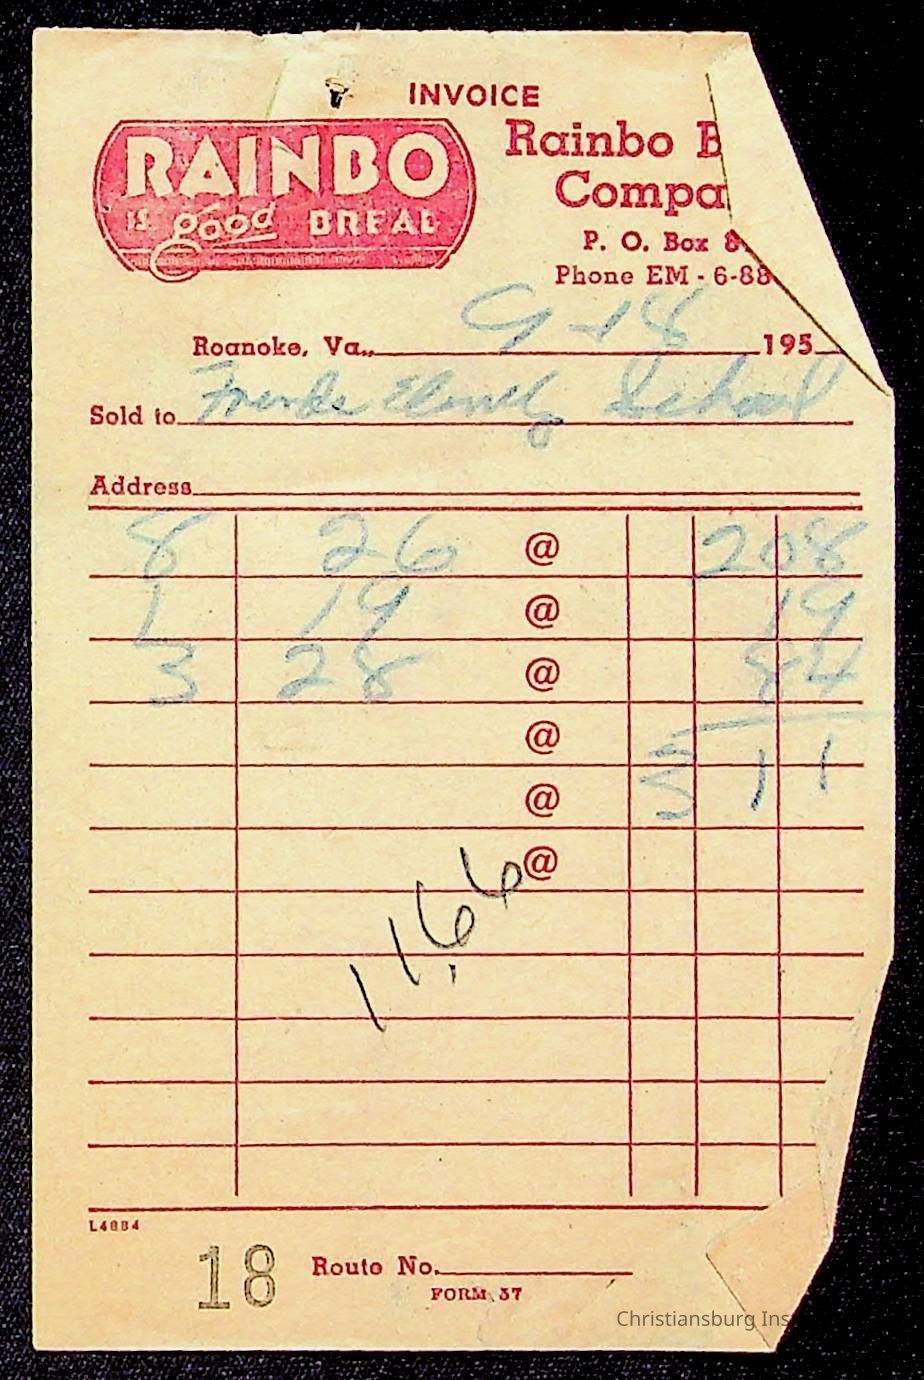 INVOICE
RAINBO
IS good BREAD
Rainbo B
Compa
P. O. Box 8
Phone EM - 6-88
Roanoke, Va., 9-18 195
Sold to School
Address
8 26 @ 208
1 19 @ 19
3 28 @ 84
@ 3 11
@
@
11.66
L4884
18 Route No.
FORM 37
Christiansburg Ins